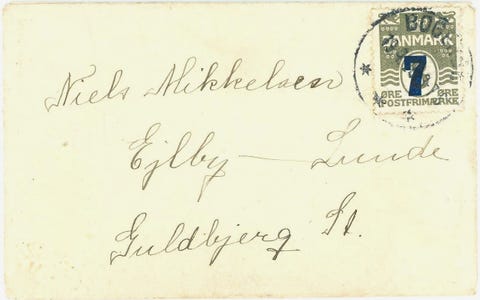 DANMARK
7
ØRE ØRE
POSTFRIMÆRKE
Niels Mikkelsen
Ejlby Lunde
Guldbjerg St.